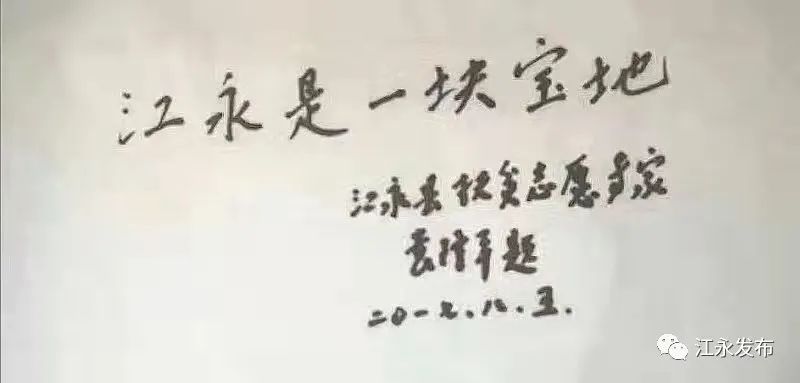 江永是一块宝地
江永县扶贫志愿专家
袁隆平题
二〇一七.八.五.
江永发布